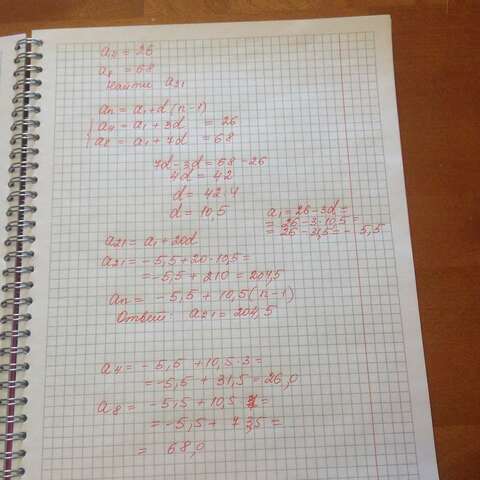 a₄ = 26
a₈ = 68
Найти a₂₁
aₙ = a₁ + d (n-1)
a₄ = a₁ + 3d = 26
a₈ = a₁ + 7d = 68
7d - 3d = 68 - 26
4d = 42
d = 42:4
d = 10,5
a₁ = 26 - 3d =
= 26 - 3·10,5 =
= 26 - 31,5 = - 5,5
a₂₁ = a₁ + 20d
a₂₁ = -5,5 + 20·10,5 =
= -5,5 + 210 = 204,5
aₙ = -5,5 + 10,5(n-1)
Ответ: a₂₁ = 204,5
a₄ = -5,5 + 10,5·3 =
= -5,5 + 31,5 = 26,0
a₈ = -5,5 + 10,5 7 =
= -5,5 + 73,5 =
= 68,0